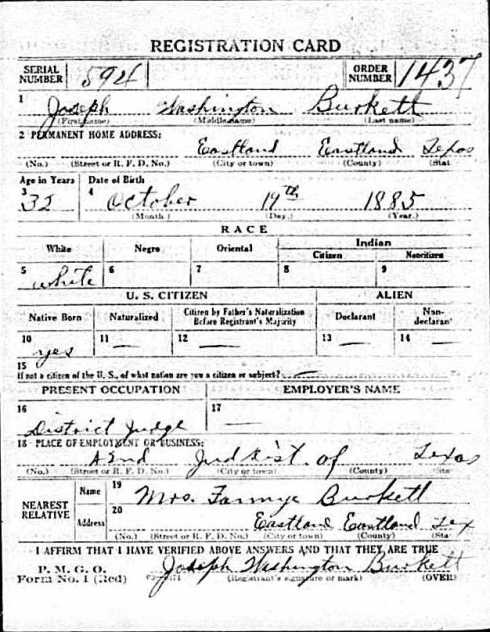 REGISTRATION CARD
SERIAL NUMBER 594 ORDER NUMBER 1437
1 Joseph Washington Burkett
(First name) (Middle name) (Last name)
2 PERMANENT HOME ADDRESS:
Eastland Eastland Texas
(No.) (Street or R. F. D. No.) (City or town) (County) (Stat
Age in Years Date of Birth
3 32 4 October 19th 1885
(Month.) (Day.) (Year.)
RACE
White Negro Oriental Indian
Citizen Noncitizen
5 white 6 7 8 9
U. S. CITIZEN ALIEN
Native Born Naturalized Citizen by Father's Naturalization Before Registrant's Majority Declarant Non-declarant
10 yes 11 — 12 — 13 — 14 —
15 If not a citizen of the U. S., of what nation are you a citizen or subject? —
PRESENT OCCUPATION EMPLOYER'S NAME
16 District Judge 17 —
18 PLACE OF EMPLOYMENT OR BUSINESS:
42nd Jud Dist. of Texas
(No.) (Street or R. F. D. No.) (City or town) (County) (Sta
NEAREST RELATIVE Name 19 Mrs. Fannye Burkett
Address 20 Eastland Eastland Tex
(No.) (Street or R. F. D. No.) (City or town) (County) (Sta
I AFFIRM THAT I HAVE VERIFIED ABOVE ANSWERS AND THAT THEY ARE TRUE
P. M. G. O.
Form No. 1 (Red) Joseph Washington Burkett
(Registrant's signature or mark) (OVER)